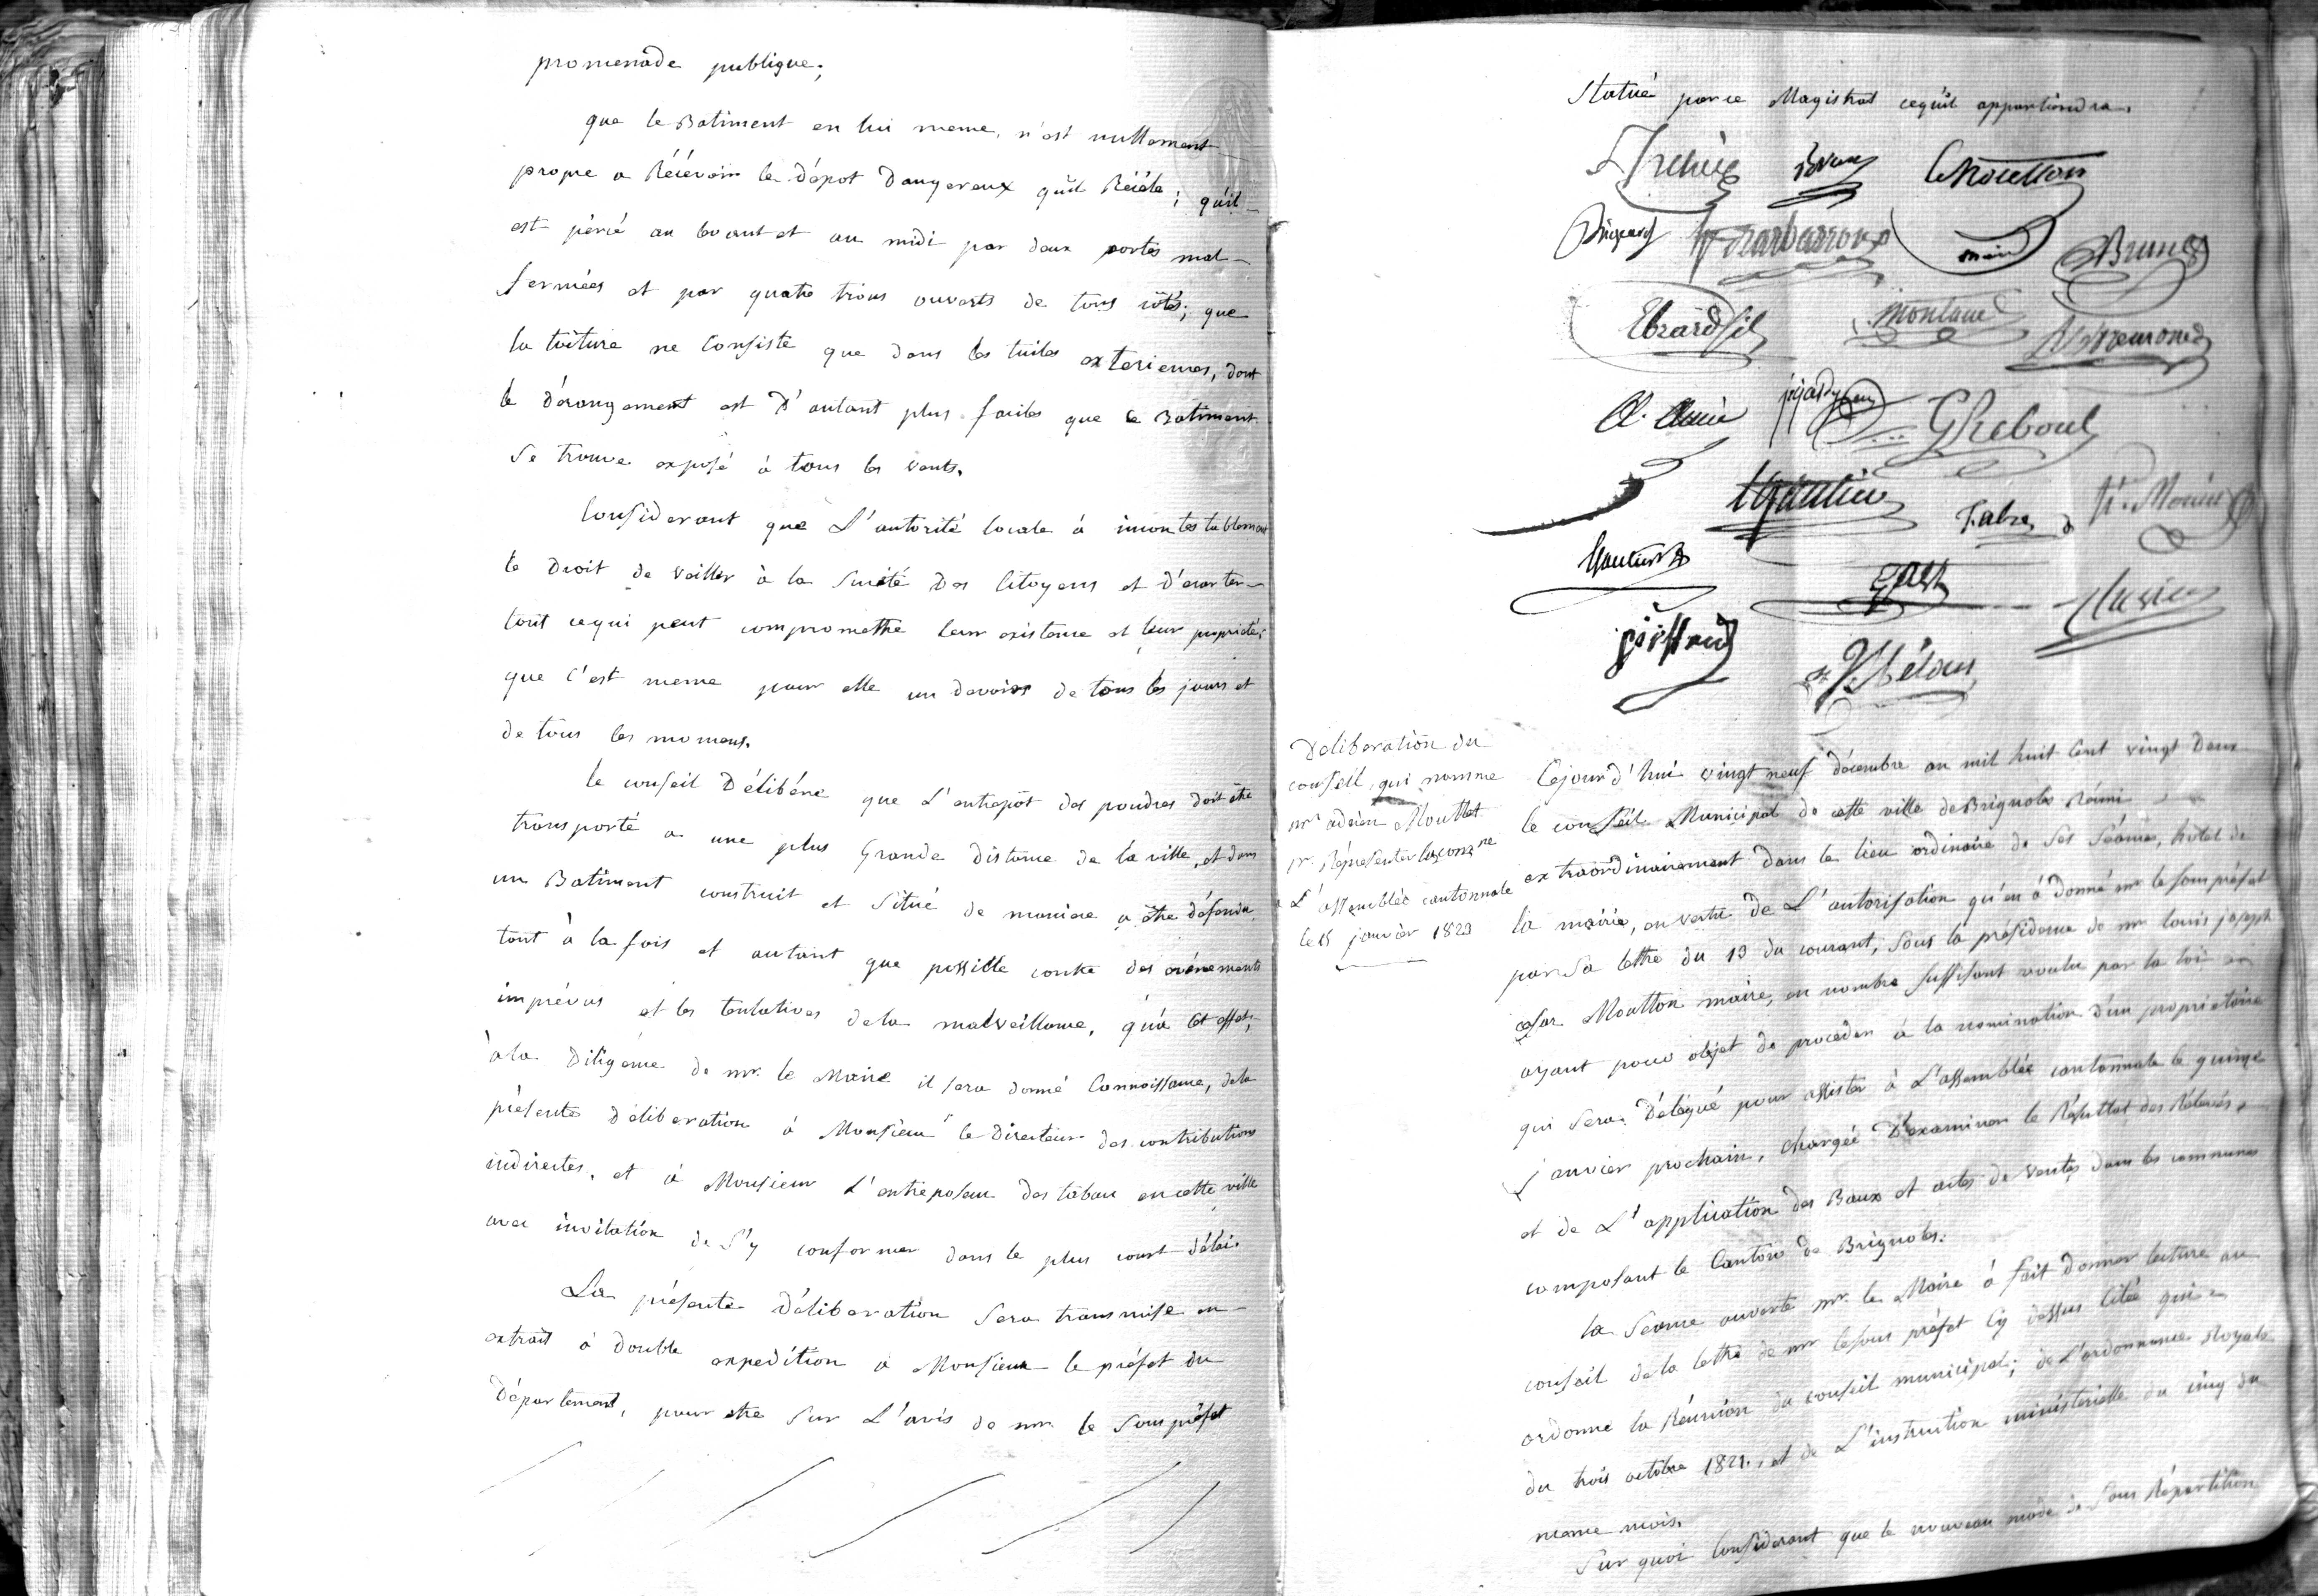 promenade publique;
que le Batiment en lui meme, n'est nullement
propre a Récévoir le dépot Dangereux qu'il Récéle; qu'il
est pércé au levant et au midi par deux portes mal
fermées et par quatre trous ouverts de tous côtés; que
la toiture ne Consiste que dans les tuiles exterieures, dont
le dérangement est D'autant plus faciles que le Batiment
se trouve exposé à tous les vents.
Considerant que L'autorité locale à incontestablement
le Droit de veiller à la Sureté Des Citoyens et D'écarter
tout cequi peut compromettre leur existence et leur proprieté;
que C'est meme pour elle un devoirs de tous les jours et
de tous les momens.
le conseil Délibére que L'entrepôt des poudres doit être
transporté a une plus Grande Distance de la ville, et dans
un Batiment construit et Situé de maniere a être défendu
tout à la fois et autant que possible contre des événements
imprévus et les tentatives dela malveillance, qu'a Cet effet,
à la Diligence de mr. le Maire il sera donné Connoissance, dela
présente déliberation à Monsieur le Directeur des contributions
indirectes, et à Monsieur L'entreposeur des tabacs en cette ville
avec invitation de S'y conformer dans le plus court délai.
La présente Déliberation Sera transmise en
extrait à double expedition a Monsieur le préfet du
Département, pour etre Sur L'avis de mr. le Sous préfet
Statué par ce Magistrat cequ'il appartiendra.
LMoutton
Barbarroux maire
Brun
Ebrard fils Montaud
GReboul
Fabre
Gautier
Déliberation du
conseil, qui nomme
mr adrien Mouttet
pr. Réprésenter la comne
a L'assemblée cantonnale
le 15 janvier 1823
Cejourd'hui vingt neuf décembre an mil huit Cent vingt Deux
le conseil Municipal de cette ville de Brignoles Réuni
extraordinairement Dans le lieu ordinaire de Ses Séances, hotel de
la mairie, en vertu de L'autorisation qu'en à donné mr le sous préfet
par Sa lettre du 13 du courant, Sous la présidence de mr louis joseph
cesar Moutton maire, en nombre Suffisant voulu par la loi
ayant pour objet de procéder à la nomination d'un proprietaire
qui Sera Délégué pour assister à L'assemblée cantonnale le quinze
janvier prochain, chargée D'examiner le Résultat des Rélevés
et de L'application des Baux et actes de ventes dans les communes
composant le Canton de Brignoles.
la Seance ouverte mr. le Maire à fait donner lecture au
conseil de la lettre de mr le sous préfet Cy dessus Citée qui
ordonne la Réunion du conseil municipal; de L'ordonnance Royale
du trois octobre 1821, et de L'instruction ministerielle du cinq du
meme mois.
Sur quoi Considerant que le nouveau mode de Sous Répartition